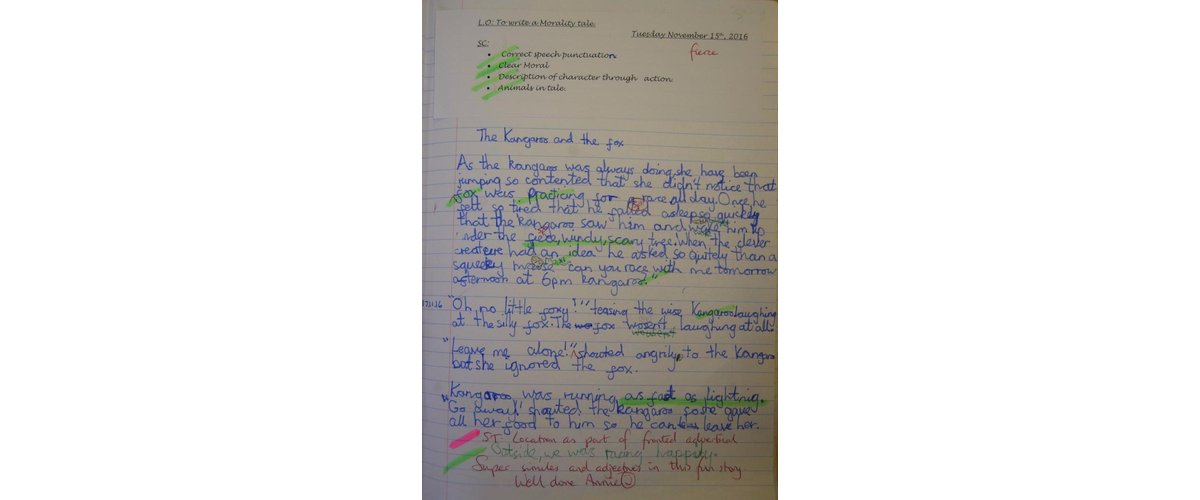 L.O: To write a Morality tale.
Tuesday November 15th, 2016
SC:
fierce
• Correct speech punctuation.
• Clear Moral
• Description of character through action.
• Animals in tale.
The Kangaroo and the fox
As the kangaroo was always doing, she have been
jumping so contented that she didn't notice that
fox was practicing for a race all day. Once he
felt so tired that he falled asleep so quickly
that the kangaroo saw him and woke him up
under the windy, scary tree. When the clever
creature had an idea he asked so quitely than a
squeeky mouse "can you race with me tomorrow
afternoon at 6pm kangaroo."
17.11.16 "Oh no little foxy!" teasing the wise Kangaroo laughing
at the silly fox. The fox wosent laughing at all.
"Leave me alone!" shouted angrily to the Kangaroo
but she ignored the fox.
Kangaroo was running as fast as lightnig.
"Go away! shouted the kangaroo so she gave
all her food to him so he can leave her.
ST: Location as part of fronted adverbial
Outside, we was racing happily.
Super similes and adjectives in this fun story.
Well done Annie